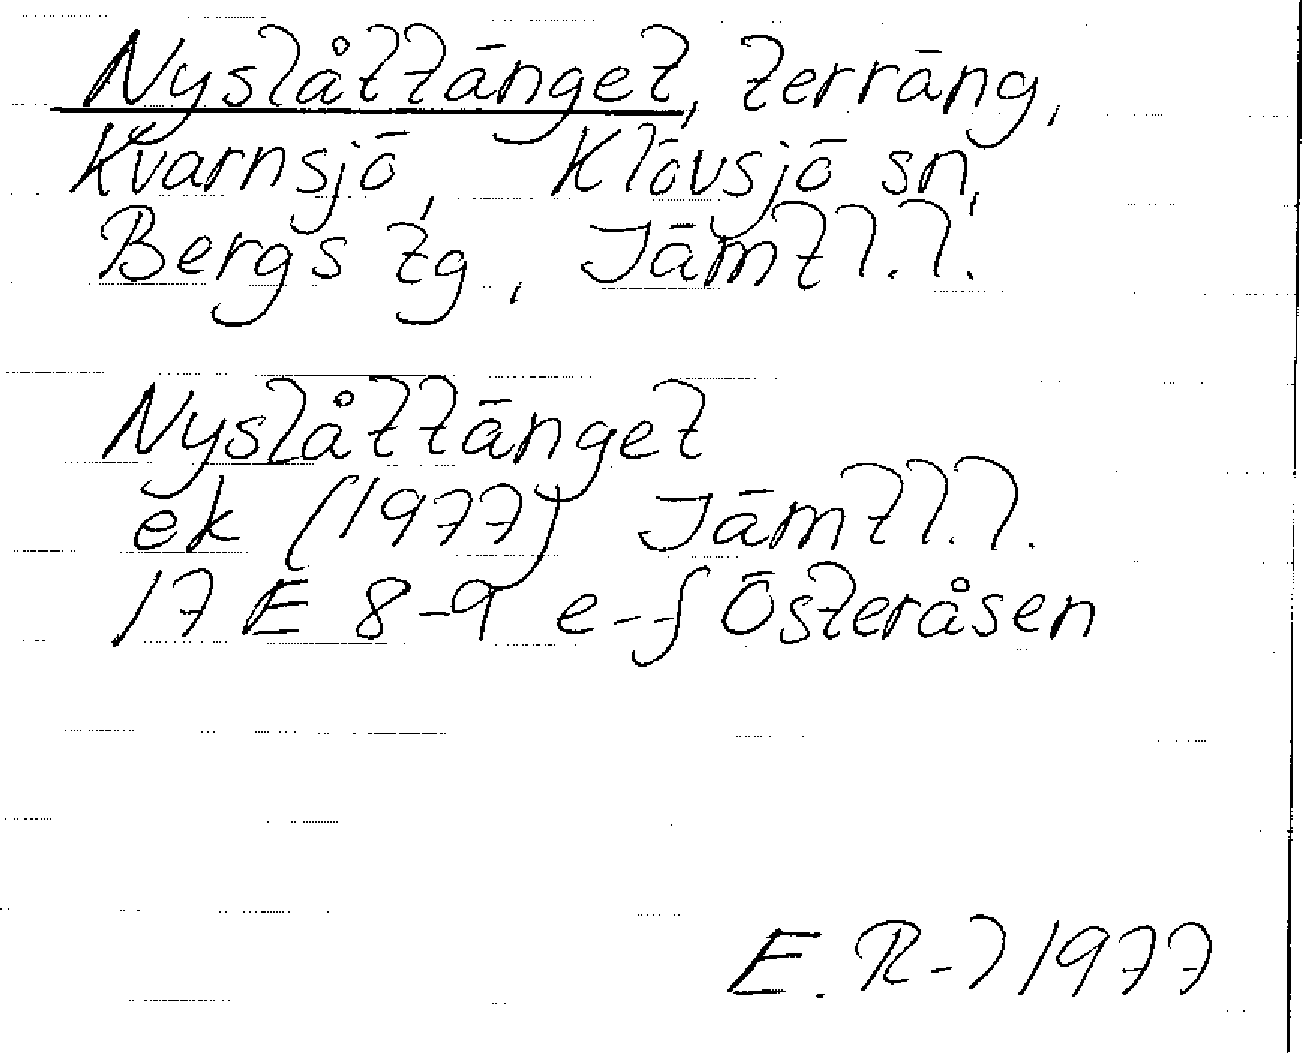 Nyslåttänget, terräng,
Kvarnsjö, Klövsjö sn,
Bergs tg, Jämtl.l.
Nyslåttänget
ek (1977) Jämtl.l.
17 E 8-9 e-f Österåsen
E. R-l 1977